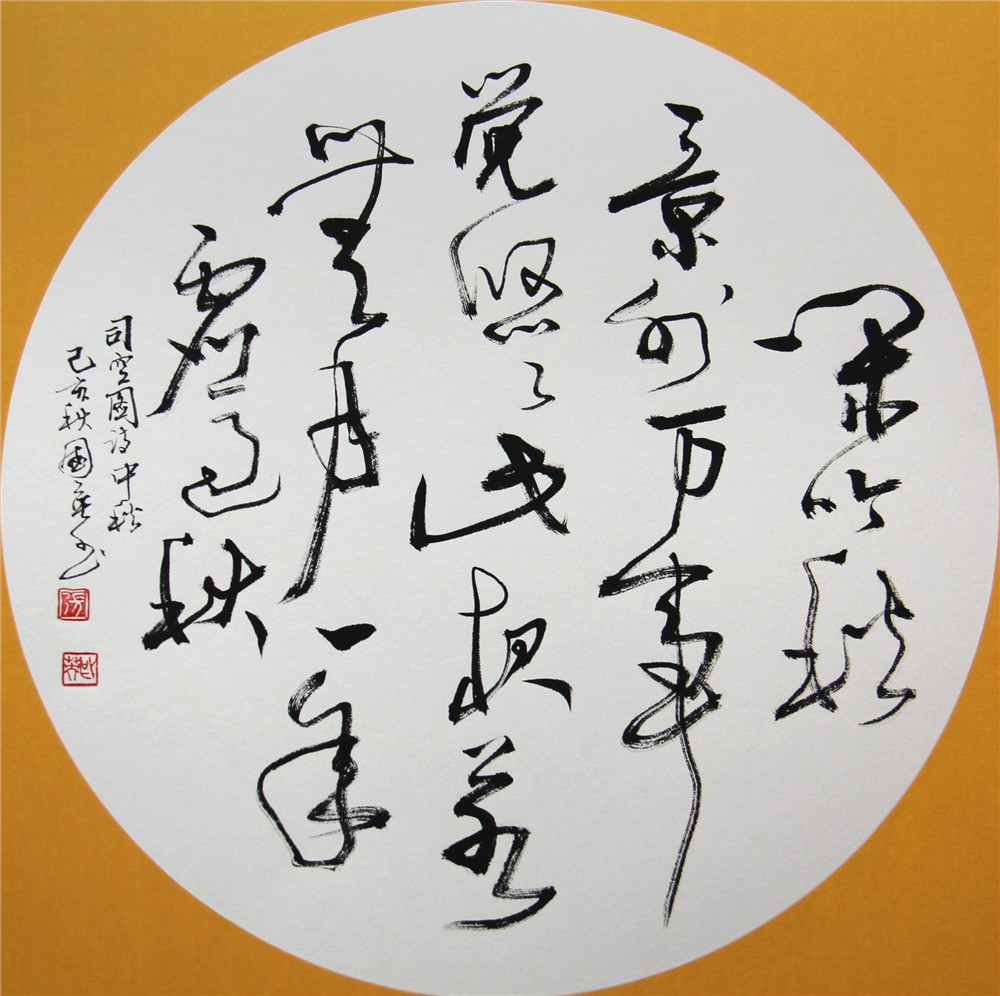 閑吟秋
景外万事
觉悠々此夜若
無月一年
虚过秋
司空圖诗中秋
己亥秋國书